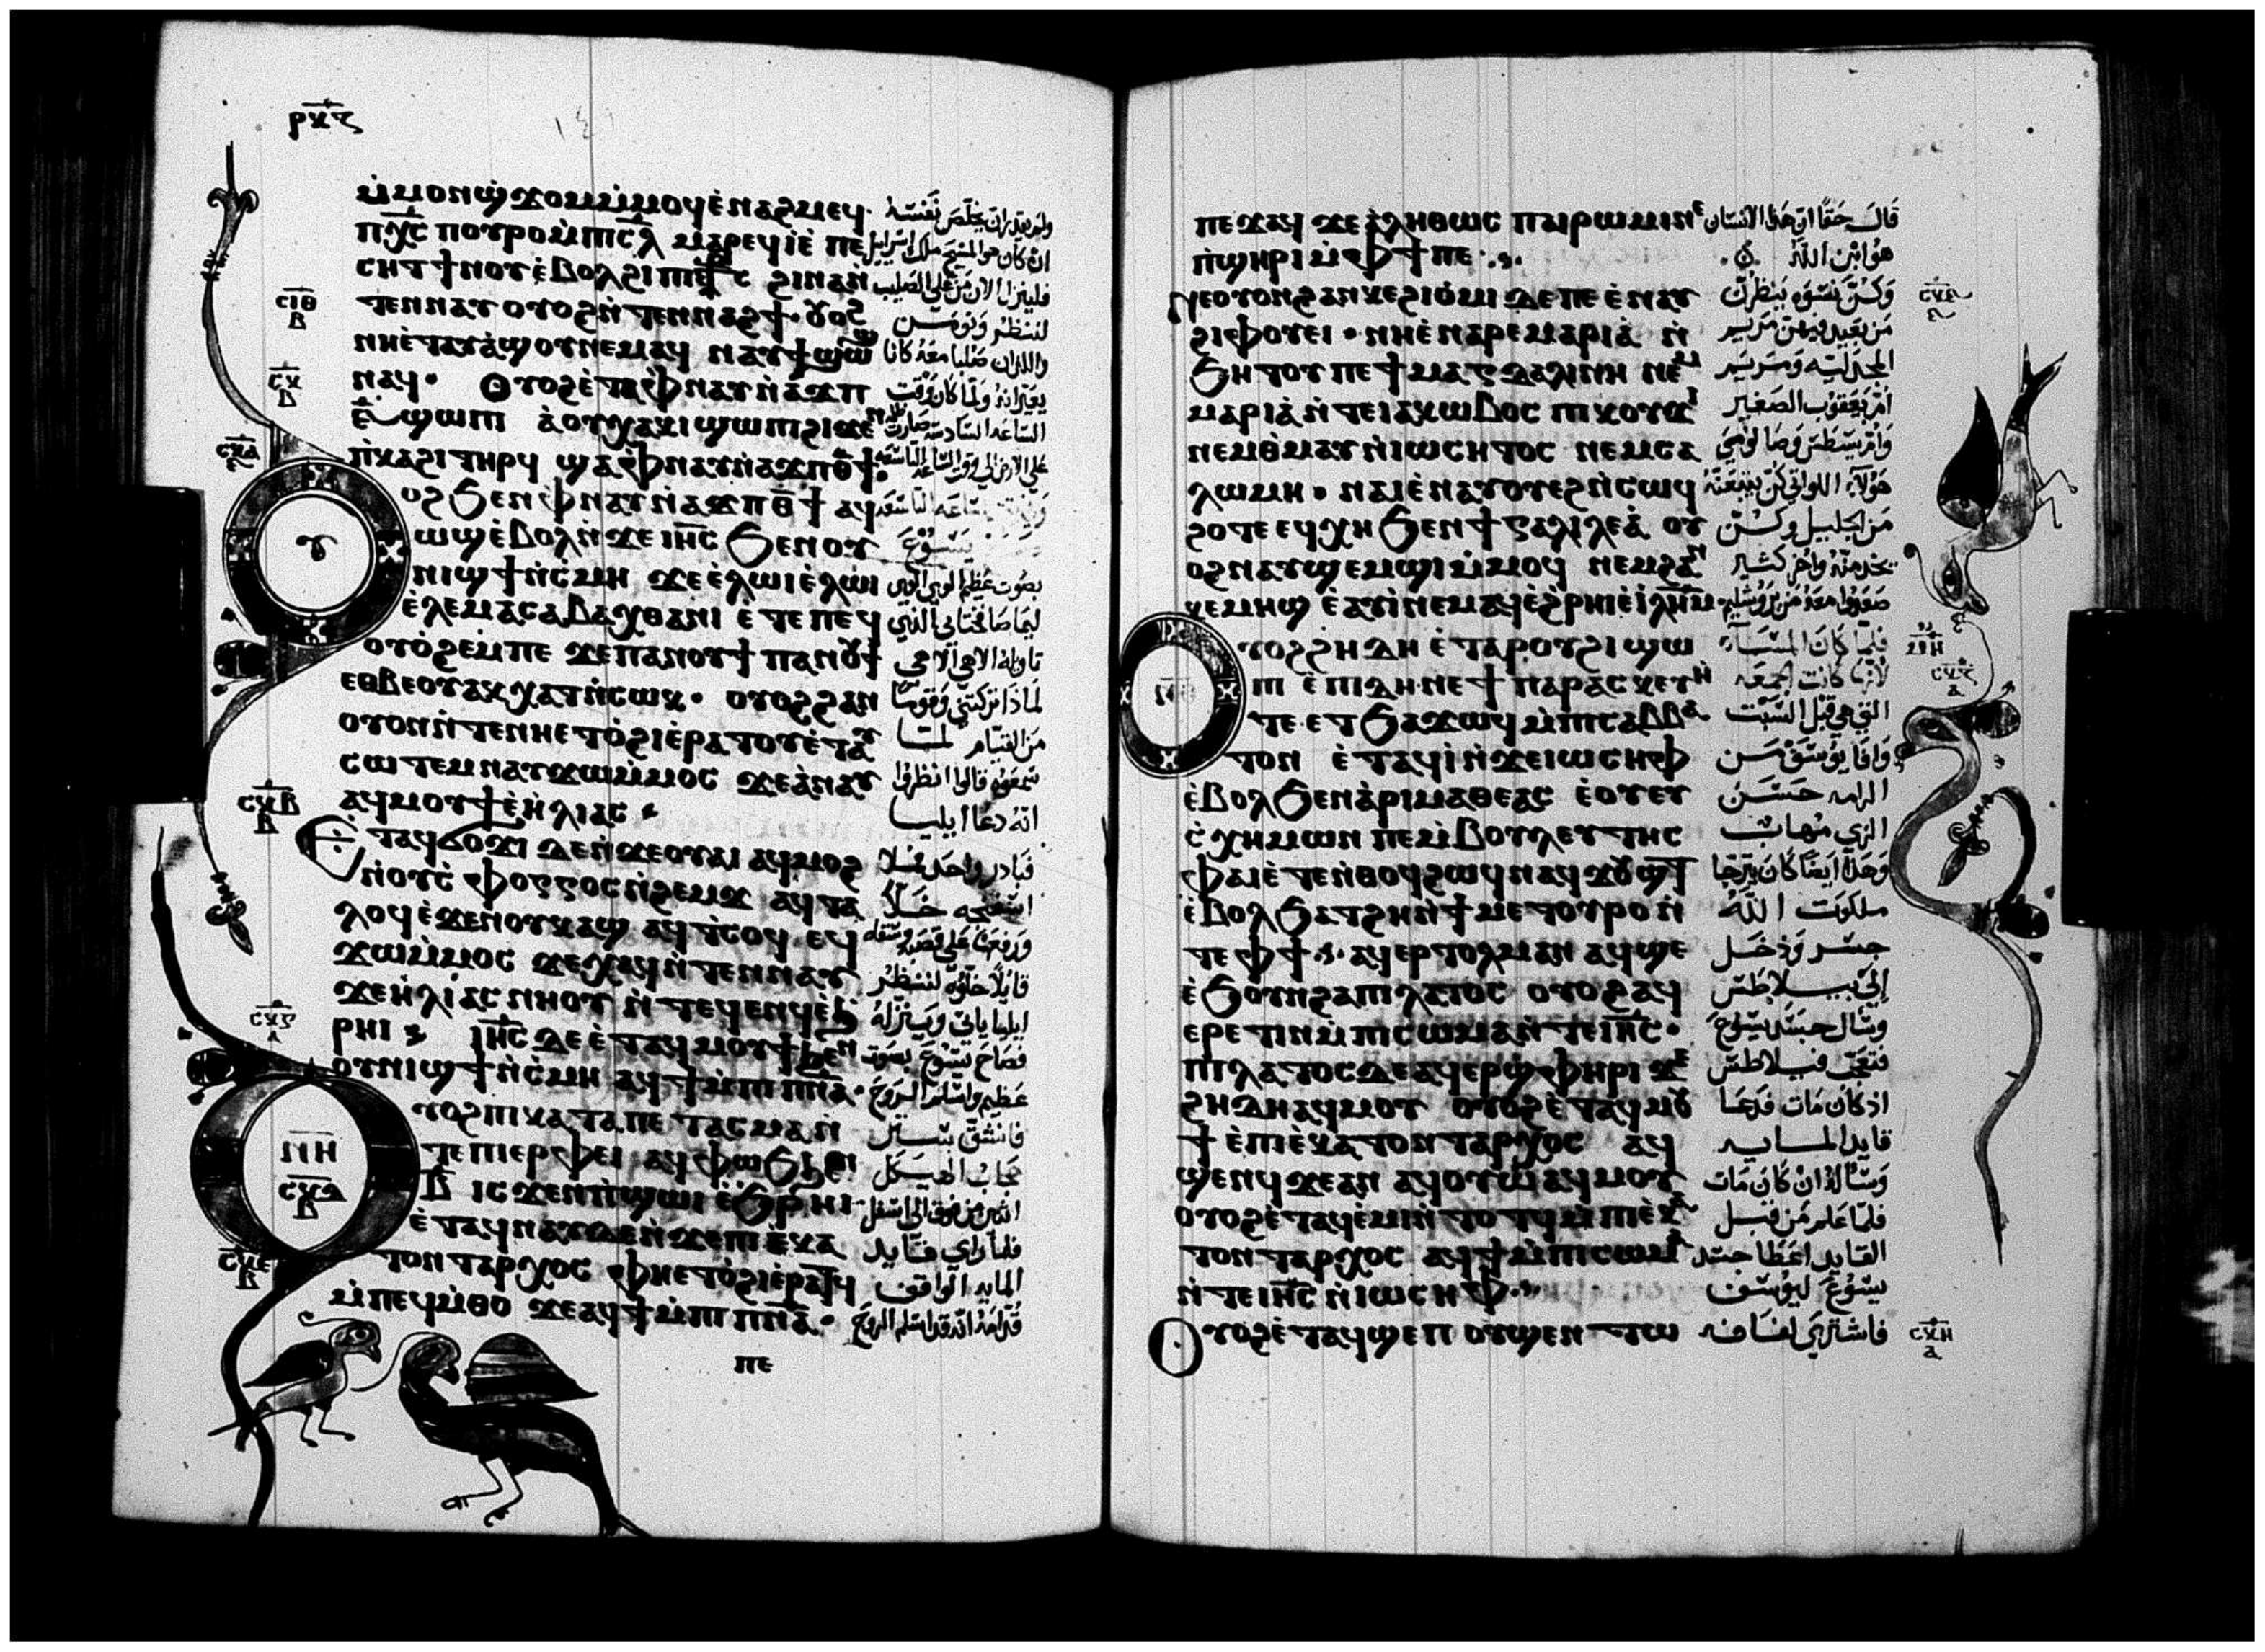 ⲣⲕⲋ
ⲙ̇ⲙⲟⲛϣϫⲟⲙⲙ̇ⲙⲟϥⲉ̇ⲛⲁϩⲙⲉϥ·
ⲡⲭ̅ⲥ ⲡⲟⲩⲣⲟⲙ̇ⲡⲓⲥ̅ⲗ ⲙⲁⲣⲉϥⲓ̇ⲉ̇ ⲡⲉ
ⲥⲏⲧϯⲛⲟⲩⲉ̇ⲃⲟⲗϩⲓⲡⲓ ϩⲓⲛⲁⲛ
ⲧⲉⲛⲛⲁⲩⲟⲩⲟϩⲛ̇ⲧⲉⲛⲛⲁϩϯ·
ⲛⲏⲉ̇ⲧⲁⲩⲁ̇ϣⲟⲩⲛⲉⲙⲁϥ ⲛⲁⲩϯϣⲱϣ
ⲛⲁϥ· ⲟⲩⲟϩⲉ̇ⲧⲁⲫⲛⲁⲩⲛ̇ⲁϫⲡ
ϣⲱⲡⲓ ⲁ̇ⲟⲩⲭⲁⲕⲓϣⲱⲡⲓϩⲓϫⲉⲛ
ⲡ̇ⲕⲁϩⲓⲧⲏⲣϥ ϣⲁⲫⲛⲁⲩⲛ̇ⲁϫⲡⲑ̅ϯ·
ⲟϩϧⲉⲛⲫⲛⲁⲩⲛ̇ⲁϫⲡⲑ̅ϯ ⲁϥ
ⲱϣⲉ̇ⲃⲟⲗⲛ̇ϫⲉⲓⲏ̅ⲥ ϧⲉⲛⲟⲩ
ⲛⲓϣϯⲛ̇ⲥ̇ⲙⲏ ϫⲉⲉ̇ⲗⲱⲓⲉ̇ⲗⲱⲓ
ⲉ̇ⲗⲉⲙⲁⲥⲁⲃⲁⲭⲑⲁⲛⲓ ⲉ̇ⲧⲉⲡⲉϥ
ⲟⲩⲟ̇ϩⲉⲙⲡⲉ ϫⲉⲡⲁⲛⲟⲩϯⲡⲁⲛⲟⲩϯ
ⲉⲑⲃⲉⲟⲩⲁⲕⲭⲁⲧⲛ̇ⲥⲱⲕ· ⲟⲩⲟϩϩⲁⲛ
ⲟⲩⲟⲛⲛ̇ⲧⲉⲛⲏⲉⲧⲟ̇ϩⲓⲉ̇ⲣⲁⲧⲟⲩⲉ̇ⲧⲁⲩ
ⲥⲱⲧⲉⲙⲛⲁⲩϫⲱⲙ̇ⲙⲟⲥ ϫⲉⲁ̇ⲛⲁⲩ
ⲁϥⲙⲟⲩϯⲉ̇ⲏ̇ⲗⲓⲁⲥ
ⲉⲧⲁϥϭⲟϫⲓ ⲇⲉⲛ̇ϫⲉⲟⲩⲁⲓ ⲁϥⲙⲟϩ
ⲛ̇ⲟⲩⲥ̇ⲫⲟⲅⲅⲟⲥⲛ̇ϩⲉⲙϫ ⲁϥⲧⲁ
ⲗⲟϥⲉ̇ϫⲉⲛⲟⲩⲕⲁϣ ⲁϥⲧⲥⲟϥ ⲉϥ
ϫⲱⲙ̇ⲙⲟⲥ ϫⲉⲭⲁϥⲛ̇ⲧⲉⲛⲛⲁⲩ
ϫⲉⲏ̇ⲗⲓⲁⲥ ⲛⲏⲟⲩ ⲛ̇ⲧⲉϥⲉⲛϥⲉ̇ϧ
ⲣⲏⲓ ⲓⲏ̅ⲥ ⲇⲉⲉ̇ⲧⲁϥⲙⲟⲩϯϧⲉⲛ
ⲟⲩⲛⲓϣϯⲛ̇ⲥ̇ⲙⲏ ⲁϥϯⲙ̇ⲡⲓⲡⲛ̅ⲁ·
ⲩⲟϩⲡⲓⲕⲁⲧⲁⲡⲉⲧⲁⲥⲙⲁⲛ̇
ⲧⲉⲡⲓⲉⲣⲫⲉⲓ ⲁϥⲫⲱϧ
ⲃ̅ ⲓⲥϫⲉⲛⲡ̇ϣⲱⲓ ⲉ̇ϧⲣⲏⲓ·
ⲉ̇ⲧⲁϥⲛⲁⲩⲇⲉⲛ̇ϫⲉⲡⲓⲉⲕⲁ
ⲧⲟⲛⲧⲁⲣⲭⲟⲥ ⲫⲏⲉⲧⲟ̇ϩⲓⲉ̇ⲣⲁⲧϥ
ⲙ̇ⲡⲉϥⲙ̇ⲑⲟ ϫⲉⲁϥϯⲙ̇ⲡⲓⲡⲛ̅ⲁ·
ⲡⲉ
ان كان هو المسيح ملك اسراييل
فلينزل الان من على الصليب
لننظر ونومن
واللذان صلبا معه كانا
يسوع
بصوت عظيم الوي الوي
تاويله الاهي الاهي
لماذا تركتني وقوما
من القيام لما
سمعوه قالوا انظروا
انه دعا ايليا
فبادر واحد فملا
قايلا خلوه لننظر
ايليا ياتي وينزله
فصاح يسوع بصوت
عظيم واسلم الروح
فانشق ستر
حجاب الهيكل
اثنين من فوق الى اسفل
فلما راى قايد
المايه الواقف
ⲥⲓⲑ ⲃ
ⲥⲕ ⲃ
ⲥⲕⲁ
ⲥⲕⲃ ⲃ
ⲥⲕⲅ ⲁ
ⲙⲏ
ⲥⲕⲇ ⲃ
ⲥⲕⲉ ⲃ
ⲡⲉϫⲁϥ ϫⲉⲁ̇ⲗⲏⲑⲱⲥ ⲡⲁⲓⲣⲱⲙⲓⲛⲉ
ⲡ̇ϣⲏⲣⲓⲙ̇ⲫϯⲡⲉ·
ⲛⲉⲟⲩⲟⲛϩⲁⲛⲕⲉϩⲓⲟ̇ⲙⲓ ⲇⲉⲡⲉ ⲉ̇ⲛⲁⲩ
ϩⲓⲫⲟⲩⲉⲓ· ⲛⲏⲉ̇ⲛⲁⲣⲉⲙⲁⲣⲓⲁ̇ ⲛ̇
ϧⲏⲧⲟⲩ ⲡⲉ ϯⲙⲁⲅⲇⲁⲗⲓⲛⲏ ⲛⲉⲙ
ⲙⲁⲣⲓⲁ̇ⲛ̇ⲧⲉⲓⲁⲕⲱⲃⲟⲥ ⲡⲓⲕⲟⲩϫⲓ
ⲛⲉⲙⲑ̇ⲙⲁⲩⲛ̇ⲓⲱⲥⲏⲧⲟⲥ ⲛⲉⲙⲥⲁ
ⲗⲱⲙⲏ· ⲛⲁⲓⲉ̇ⲛⲁⲩⲟⲩⲉϩⲛ̇ⲥⲱϥ
ϩⲟⲧⲉ ⲉϥⲭⲏ ϧⲉⲛϯⲅⲁⲗⲓⲗⲉⲁ̇ ⲟⲩ
ⲟϩⲛⲁⲩϣⲉⲙϣⲓⲙ̇ⲙⲟϥ ⲛⲉⲙϩⲁⲛ
ⲕⲉⲙⲏϣ ⲉ̇ⲁⲩⲓ̇ⲛⲉⲙⲁϥⲉ̇ϩ̇ⲣⲏⲓⲉ̇ⲓ̇ⲗⲏ̅ⲙ
ⲩⲟϩϩⲏⲇⲏ ⲉ̇ⲧⲁⲣⲟⲩϩⲓ ϣⲱ
ⲡⲓ ⲉ̇ⲡⲓⲇⲏ·ⲛⲉϯⲡⲁⲣⲁⲥⲕⲉⲩⲏ
ⲧⲉ·ⲉⲧϧⲁϫⲱϥ ⲙ̇ⲡⲓⲥⲁⲃⲃⲁ
ⲧⲟⲛ ⲉ̇ⲧⲁϥⲓ̇ⲛ̇ϫⲉⲓⲱⲥⲏⲫ
ⲉ̇ⲃⲟⲗϧⲉⲛⲁ̇ⲣⲓⲙⲁⲑⲉⲁⲥ ⲉ̇ⲟⲩⲉⲩ
ⲥ̇ⲭⲏⲙⲱⲛ ⲡⲉⲙ̇ⲃⲟⲩⲗⲉⲩⲧⲏⲥ
ⲫⲁⲓⲉ̇ⲧⲉⲛ̇ⲑⲟϥϩⲱϥ ⲛⲁϥϫⲟⲩϣⲧ
ⲉ̇ⲃⲟⲗϧⲁⲧϩⲏⲛ̇ϯⲙⲉⲧⲟⲩⲣⲟ ⲛ̇
ⲧⲉⲫϯ· ⲁϥⲉⲣⲧⲟⲗⲙⲁⲛ ⲁϥϣⲉ
ⲉ̇ϧⲟⲩⲛϩⲁⲡⲓⲗⲁⲧⲟⲥ ⲟⲩⲟϩⲁϥ
ⲉⲣⲉⲧⲓⲛⲙ̇ⲡⲓⲥⲱⲙⲁⲛ̇ⲧⲉⲓⲏ̅ⲥ·
ⲡⲓⲗⲁⲧⲟⲥⲇⲉⲁϥⲉⲣϣ̇ⲫⲏⲣⲓ ϫⲉ
ϩⲏⲇⲏⲁϥⲙⲟⲩ ⲟⲩⲟϩⲉ̇ⲧⲁϥⲙⲟⲩ
ϯ ⲉ̇ⲡⲓⲉ̇ⲕⲁⲧⲟⲛⲧⲁⲣⲭⲟⲥ ⲁϥ
ϣⲉⲛϥ ϫⲉⲁⲛ ⲁϥⲟⲩⲱ ⲁϥⲙⲟⲩ
ⲟⲩⲟϩⲉ̇ⲧⲁϥⲉ̇ⲙⲓⲛ̇ⲧⲟⲧϥⲙ̇ⲡⲓⲉ̇ⲕⲁ
ⲧⲟⲛⲧⲁⲣⲭⲟⲥ ⲁϥϯⲙ̇ⲡⲓⲥⲱⲙⲁ
ⲛ̇ⲧⲉⲓⲏ̅ⲥ ⲛ̇ⲓⲱⲥⲏⲫ·
ⲟⲩⲟϩⲉ̇ⲧⲁϥϣⲉⲡ ⲟⲩϣⲉⲛⲧⲱ
قال حقا ان هذا الانسان
هو ابن الله
وكن نسوه ينظرن
من بعيد فيهن مريم
المجدليه ومريم
ام يعقوب الصغير
هولاء اللواتي كن يتبعنه
من الجليل وكن
يخدمنه واخر كثير
صعدوا معه من يروشليم
فلما كان المساء
لانها كانت الجمعه
التي هي قبل السبت
وافا يوسف من
الرامه حسن
الزي مهاب
وهذا ايضا كان يترجا
ملكوت الله
جسر ودخل
الى بيلاطس
وسال جسد يسوع
فتعجب فيلاطس
اذ كان مات فدعا
قايد المايه
وساله ان كان مات
فلما علم من قبل
القايد اعطا جسد
يسوع ليوسف
فاشترى لفافه
ⲙⲏ
ⲥⲕⲍ ⲁ
ⲥⲕⲏ ⲁ